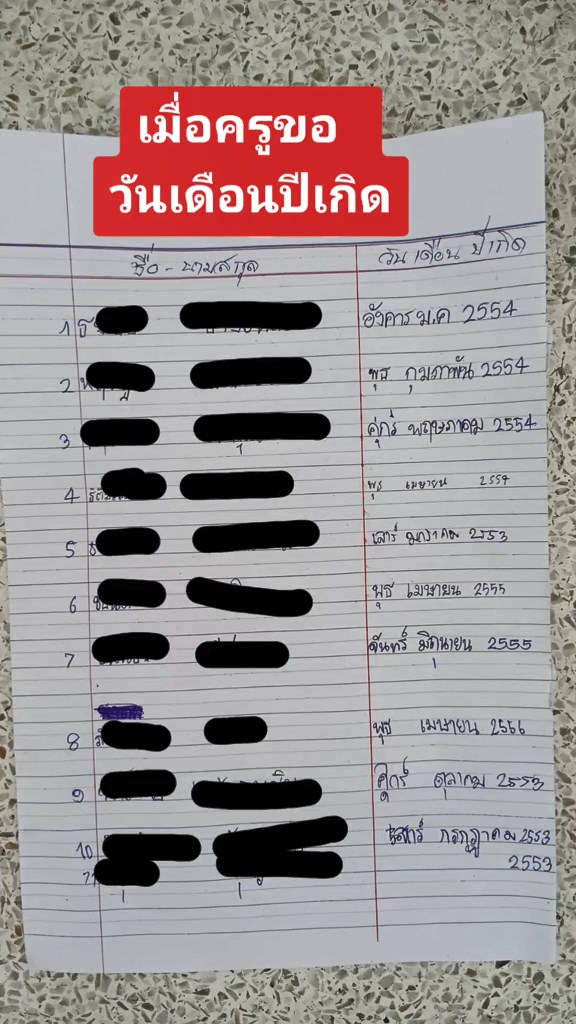 เมื่อครูขอ
วันเดือนปีเกิด
ชื่อ - นามสกุล วัน เดือน ปีเกิด
1 อังคาร ม.ค 2554
2 พุธ กุมภาพัน 2554
3 ศุกร์ พฤษภาคม 2554
4 พุธ เมษายน 2554
5 เสาร์ มกราคม 2553
6 พุธ เมษายน 2555
7 จันทร์ มิถุนายน 2555
8 พุธ เมษายน
9 ศุกร์ ตุลาคม 2553
10 เสาร์ กรกฎาคม 2553
11 2553